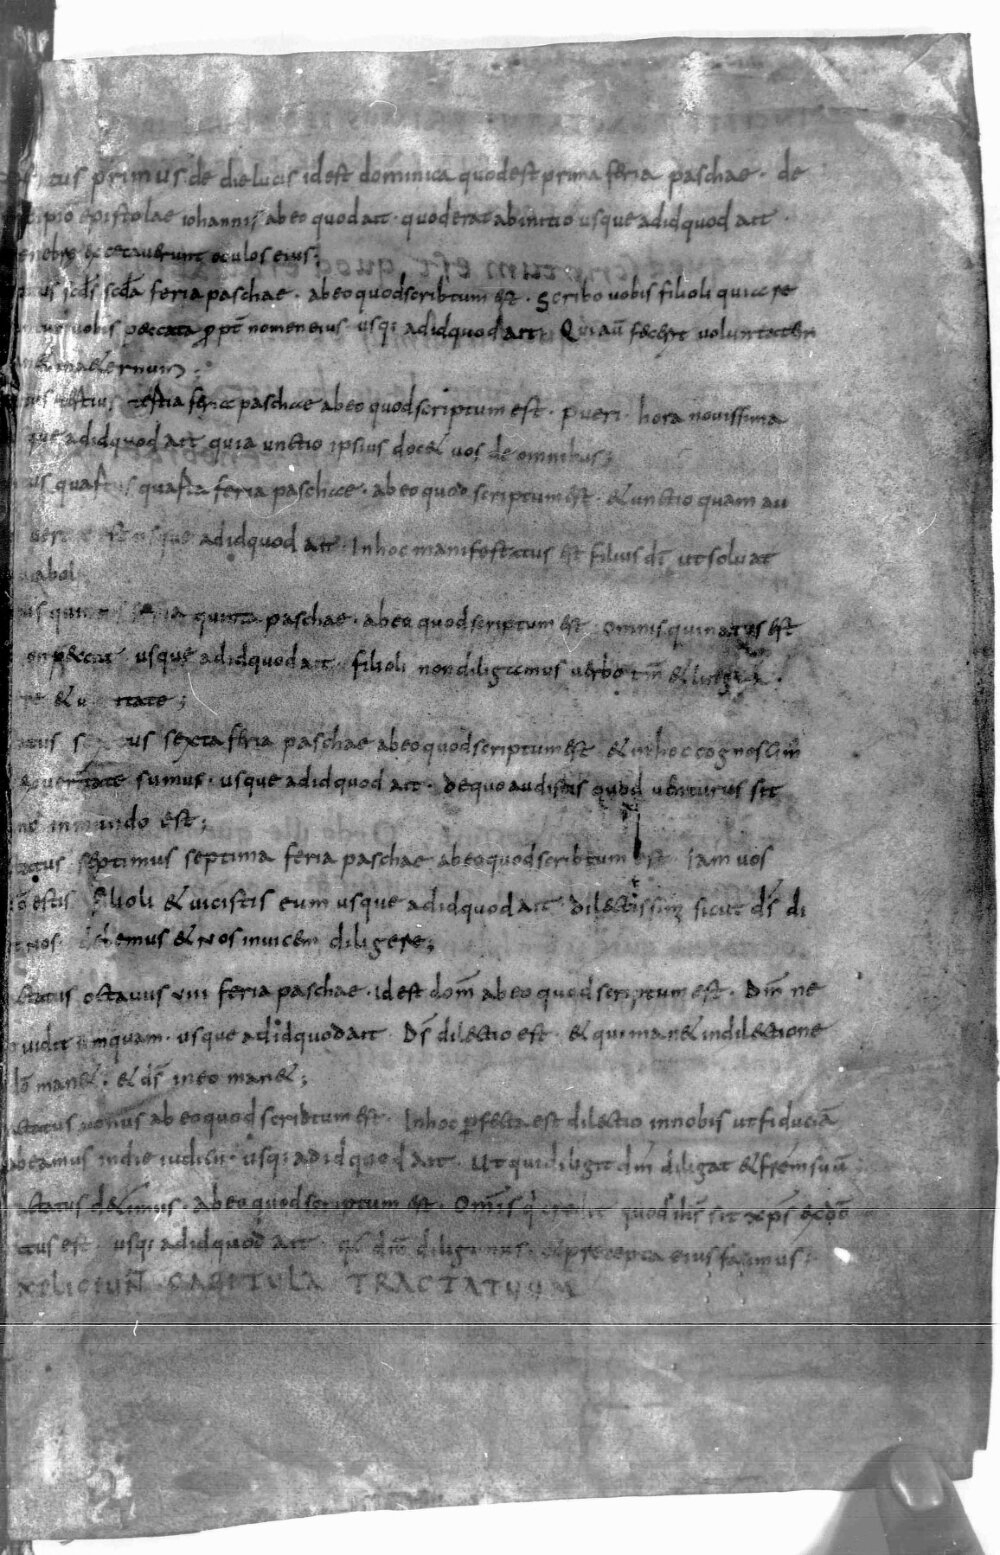 primus de die lucis id est dominica quod est prima feria paschae · de
epistolae iohannis ab eo quod ait · quod erat ab initio usque ad id quod ait ·
excecaverunt oculos eius;
scds scda feria paschae · ab eo quod scribtum est · Scribo vobis filioli quia re
vobis peccata ꝓpt nomen eius · usq; ad id quod ait · Qui aū fecerit voluntatem
in aeternum ;
tertius tertia feria paschae ab eo quod scriptum est · pueri · hora novissima
que ad id quod ait quia unctio ipsius docet vos de omnibus;
quartus quarta feria paschae · ab eo quod scriptum est · et unctio quam au
usque ad id quod ait · In hoc manifestatus est filius dī ut solvat
diaboli
quintus feria quinta paschae · ab eo quod scriptum est · omnis qui natus est
on peccat · usque ad id quod ait · filioli non diligamus verbo et lingua ·
et
sextus sexta feria paschae ab eo quod scriptum est et in hoc cognoscim
ex veritate sumus · usque ad id quod ait · de quo audistis quod venturus sit
in mundo est;
septimus septima feria paschae ab eo quod scribtum est · Iam vos
estis filioli et vicistis eum usque ad id quod ait dilectissim sicut ds di
nos · debemus et nos invicem diligere;
octavus viii feria paschae · id est dom ab eo quod scriptum est · Dm ne
vidit umquam · usque ad id quod ait Ds dilectio est · et qui manet in dilectione
manet · et ds in eo manet;
nonus ab eo quod scribtum est · In hoc ꝑfecta est dilectio in nobis ut fiduciā
abeamus in die iudicii · usq; ad id quod ait · Ut qui diligit dm diligat et frem suū
decimus · ab eo quod scriptum est · Omis q credit quod ihs sit xps ex dō
tus est · usq; ad id quod ait · dm diligimus · et precepta eius facimus;
XPLICIUNT CAPITULA TRACTATUUM